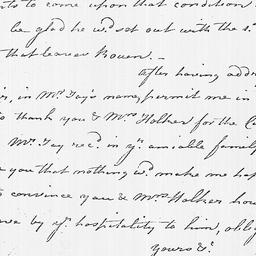 to come upon that condition
be glad he wd. set out with the s
that leaves Rouen. —
After having addre
in Mr. Jay's name, permit me in
to thank you & Mrs. Holker for the C
Mr. Jay recd. in yr. amiable family
you that nothing wd. make me hap
to convince you & Mrs. Holker how
we by yr. hospitality to him, oblig
Yours &c.